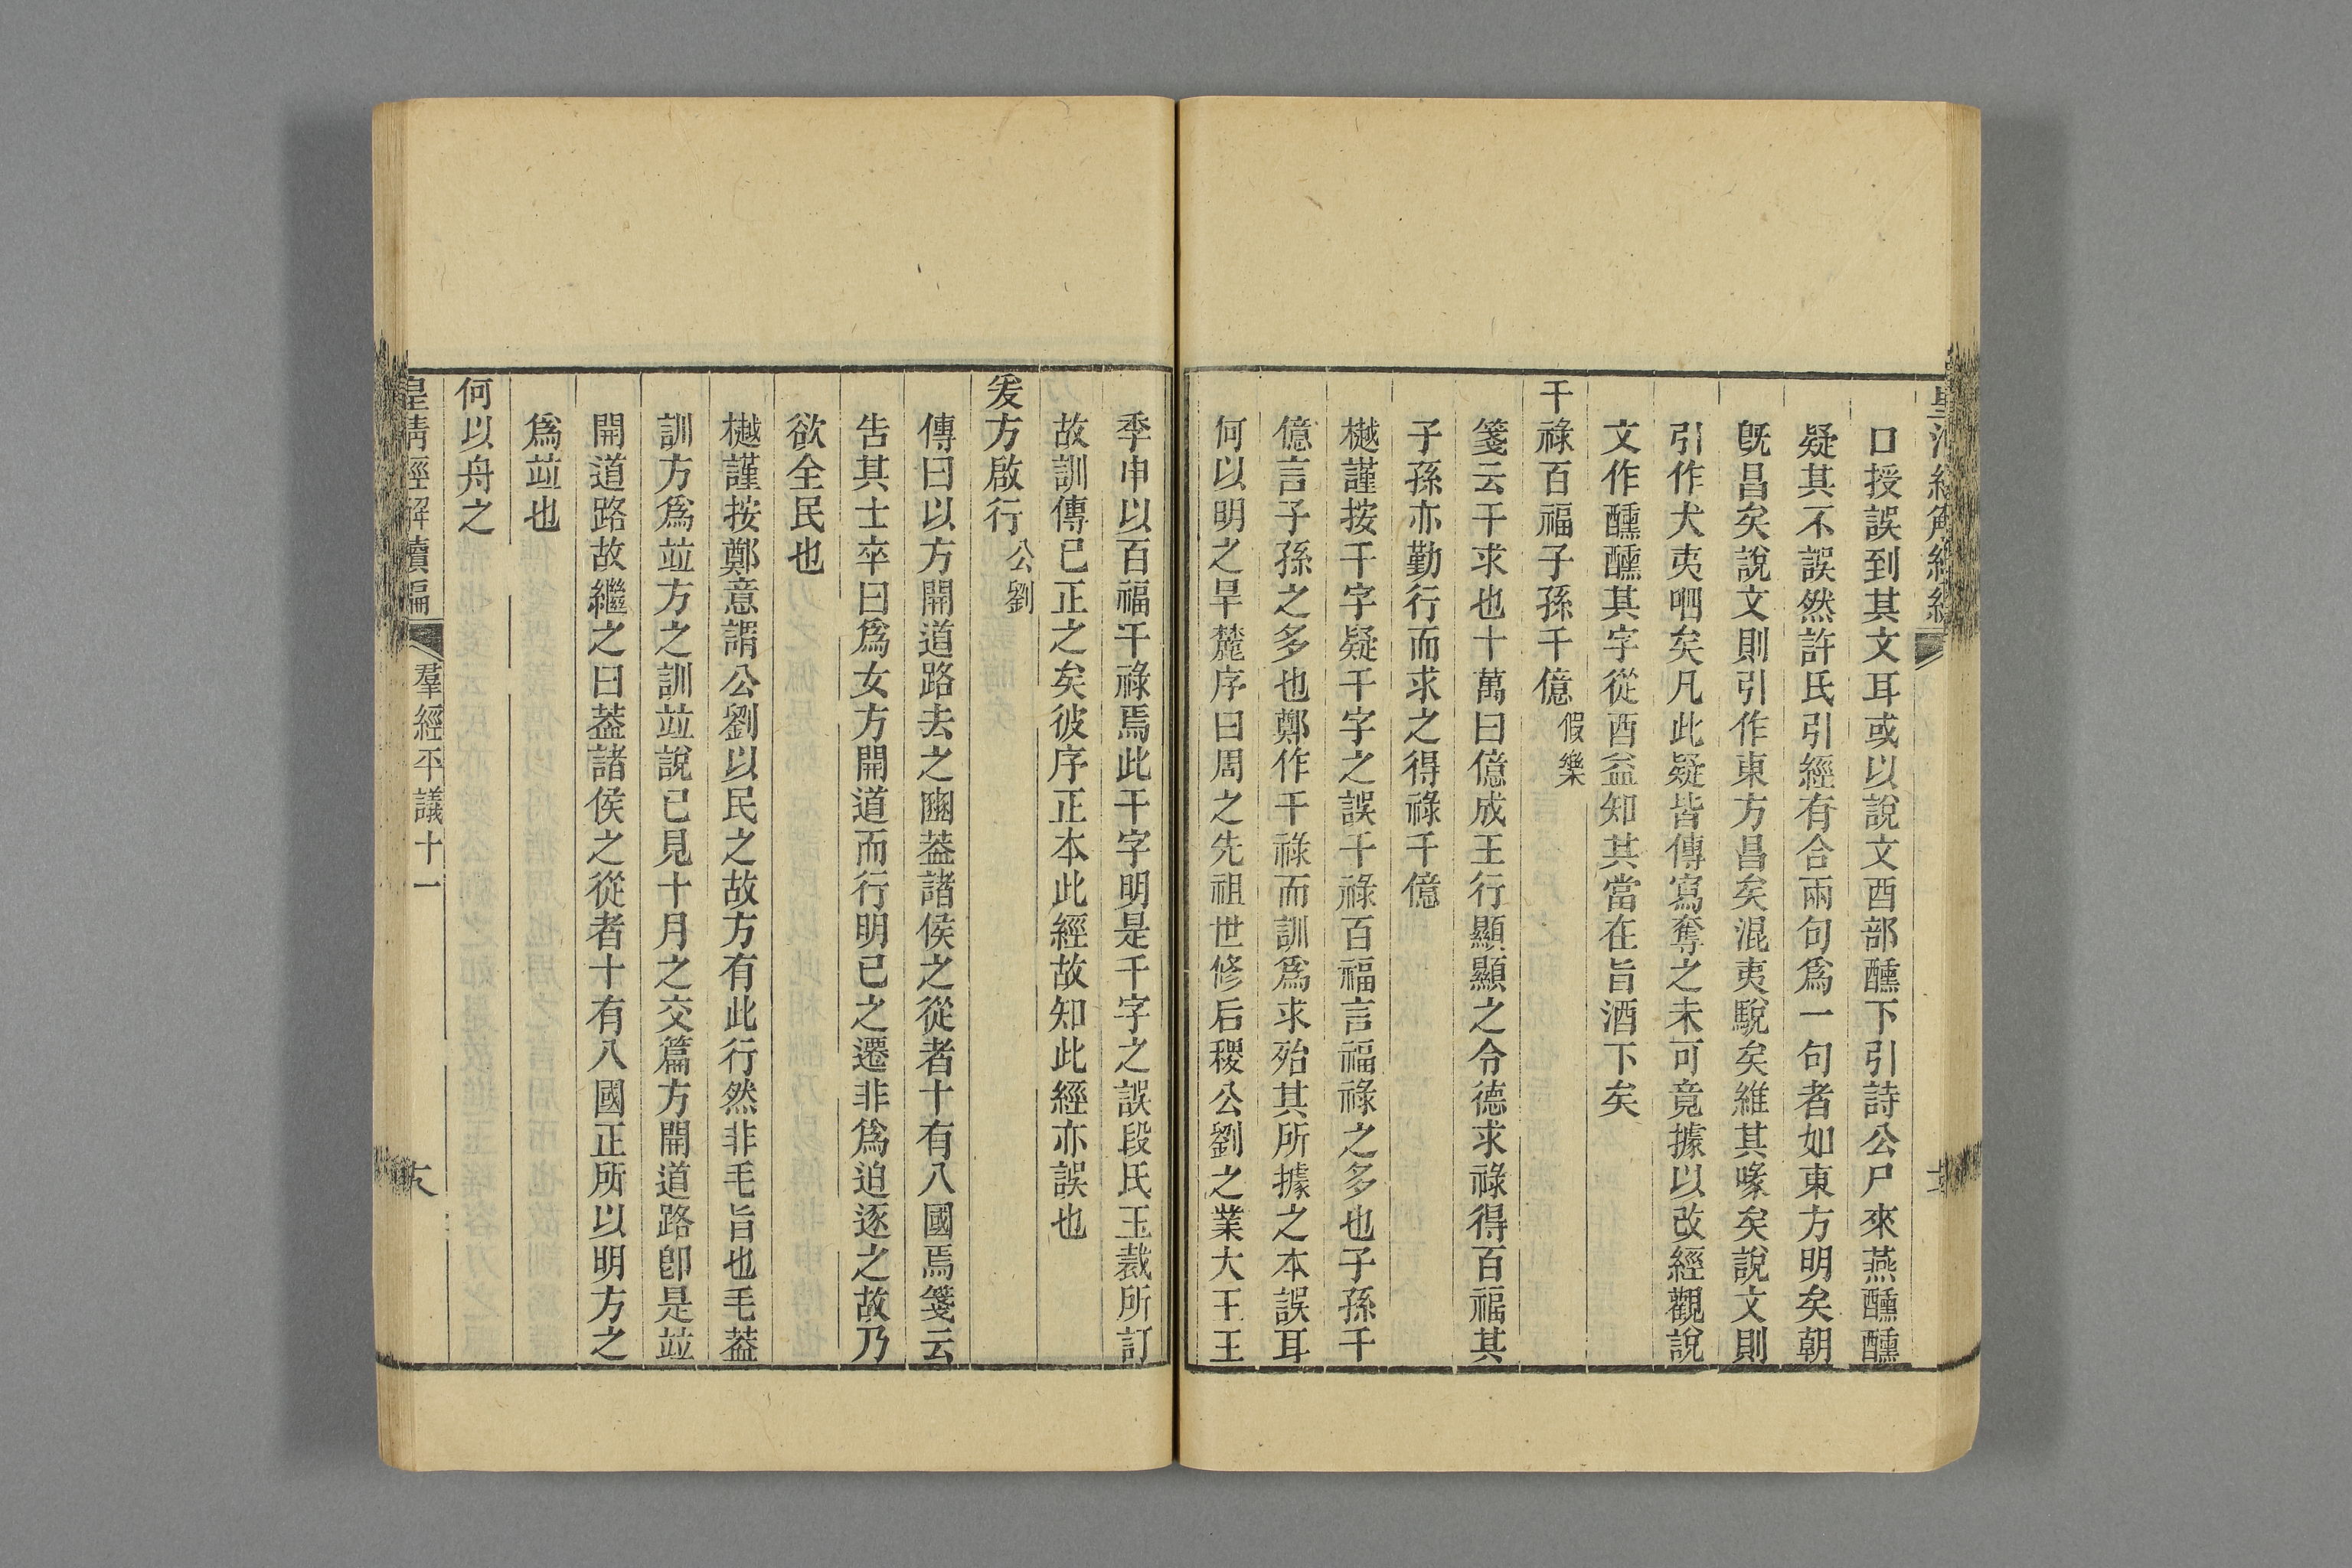 口授誤到其文耳或以說文酉部醺下引詩公尸來燕醺醺
疑其不誤然許氏引經有合兩句爲一句者如東方明矣朝
旣昌矣說文則引作東方昌矣混夷駾矣維其喙矣說文則
引作犬夷呬矣凡此疑皆傳寫奪之未可竟據以改經觀說
文作醺醺其字從酉益知其當在旨酒下矣
干祿百福子孫千億 假樂
箋云干求也十萬曰億成王行顯顯之令德求祿得百福其
子孫亦勤行而求之得祿千億
樾謹按干字疑千字之誤千祿百福言福祿之多也子孫千
億言子孫之多也鄭作干祿而訓爲求殆其所據之本誤耳
何以明之旱麓序曰周之先祖世修后稷公劉之業大王王
季申以百福干祿焉此干字明是千字之誤段氏玉裁所訂
故訓傳已正之矣彼序正本此經故知此經亦誤也
爰方啟行 公劉
傳曰以方開道路去之豳葢諸侯之從者十有八國焉箋云
告其士卒曰爲女方開道而行明已之遷非爲迫逐之故乃
欲全民也
樾謹按鄭意謂公劉以民之故方有此行然非毛旨也毛葢
訓方爲竝方之訓竝說已見十月之交篇方開道路卽是竝
開道路故繼之曰葢諸侯之從者十有八國正所以明方之
爲竝也
何以舟之
皇清經解續編 羣經平議十一